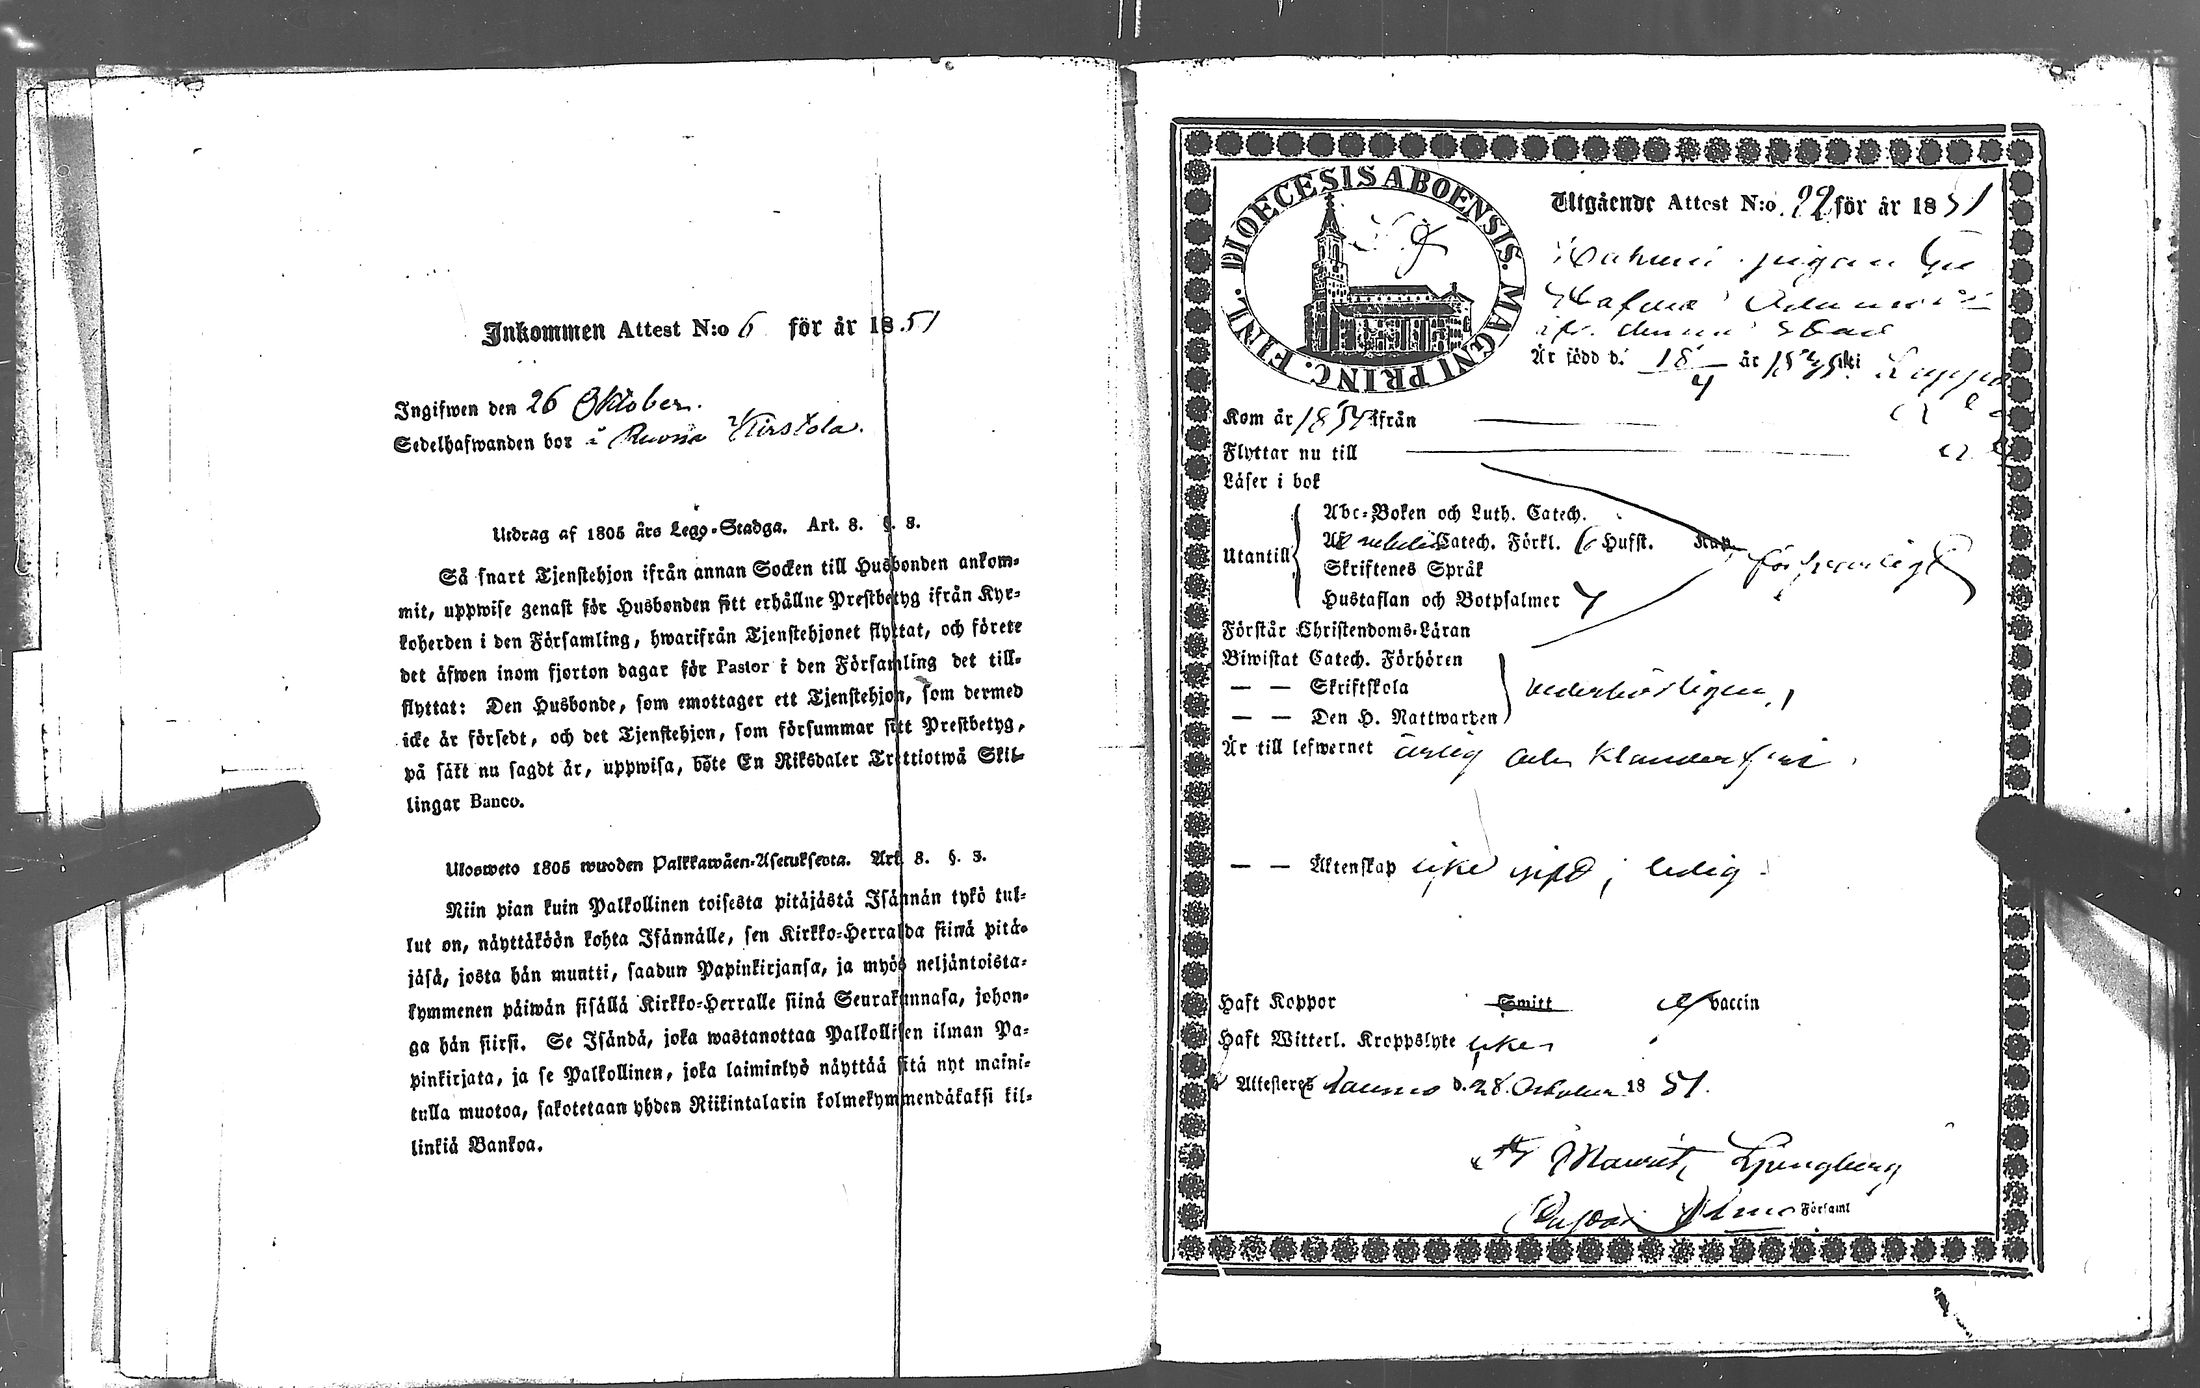 Inkommen Attest N:o 6 för år 1851
Ingifwen den 26 Oktober.
Sedelhafwanden bor i Kirstola.
Utdrag af 1805 års Lego-Stadga. Art. 8. §. 3.
Så snart Tjenstehjon ifrån annan Socken till Husbonden ankom-
mit, uppwise genast för Husbonden sitt erhållne Prestbetyg ifrån Kyr-
koherden i den Församling, hwarifrån Tjenstehjonet flyttat, och förete
det äfwen inom fjorton dagar för Pastor i den Församling det till-
flyttat: Den Husbonde, som emottager ett Tjenstehjon, som dermed
icke är försedt, och det Tjenstehjon, som försummar sitt Prestbetyg,
på sätt nu sagdt är, uppwisa, böte En Riksdaler Trettiotwå Skil-
lingar Banco.
Ulosweto 1805 wuoden Palkkawäen-Asetuksesta. Art. 8. §. 3.
Niin pian kuin Palkollinen toisesta pitäjästä Isännän tykö tul-
lut on, näyttäköön kohta Isännälle, sen Kirkko-Herralda siinä pitä-
jäsä, josta hän muutti, saadun Papinkirjansa, ja myös neljäntoista-
kymmenen päiwän sisällä Kirkko-Herralle siinä Seurakunnasa, johon-
ga hän siirsi. Se Isändä, joka wastanottaa Palkollisen ilman Pa-
pinkirjata, ja se Palkollinen, joka laiminlyö näyttää sitä nyt maini-
tulla muotoa, sakotetaan yhden Riikintalarin kolmekymmendäkaksi kil-
linkiä Bankoa.
DIOECESIS ABOENSIS. MAGNI PRINC. FINL.
Utgående Attest N:o 22 för år 1851
pigan
Är född d. 18/4 år i Lappo
Kom år 18 ifrån
Flyttar nu till
Läser i bok
Abc-Boken och Luth. Catech.
Utantill Catech. Förkl. 6 Hufst. Kap.
försvarligt
Skriftenes Språk
Hustaflan och Botpsalmer
Förstår Christendoms-Läran
Biwistat Catech. Förhören
— — Skriftskola vederbörligen
— — Den H. Nattwarden
Är till lefwernet ärlig och klanderfri
— — Äktenskap icke gift, ledig
Haft Koppor Smitt vaccin
Haft Witterl. Kroppslyte icke
Attesteres Raumo d. 28. October 1851.
Mauritz Ljungberg
Pastor Församl